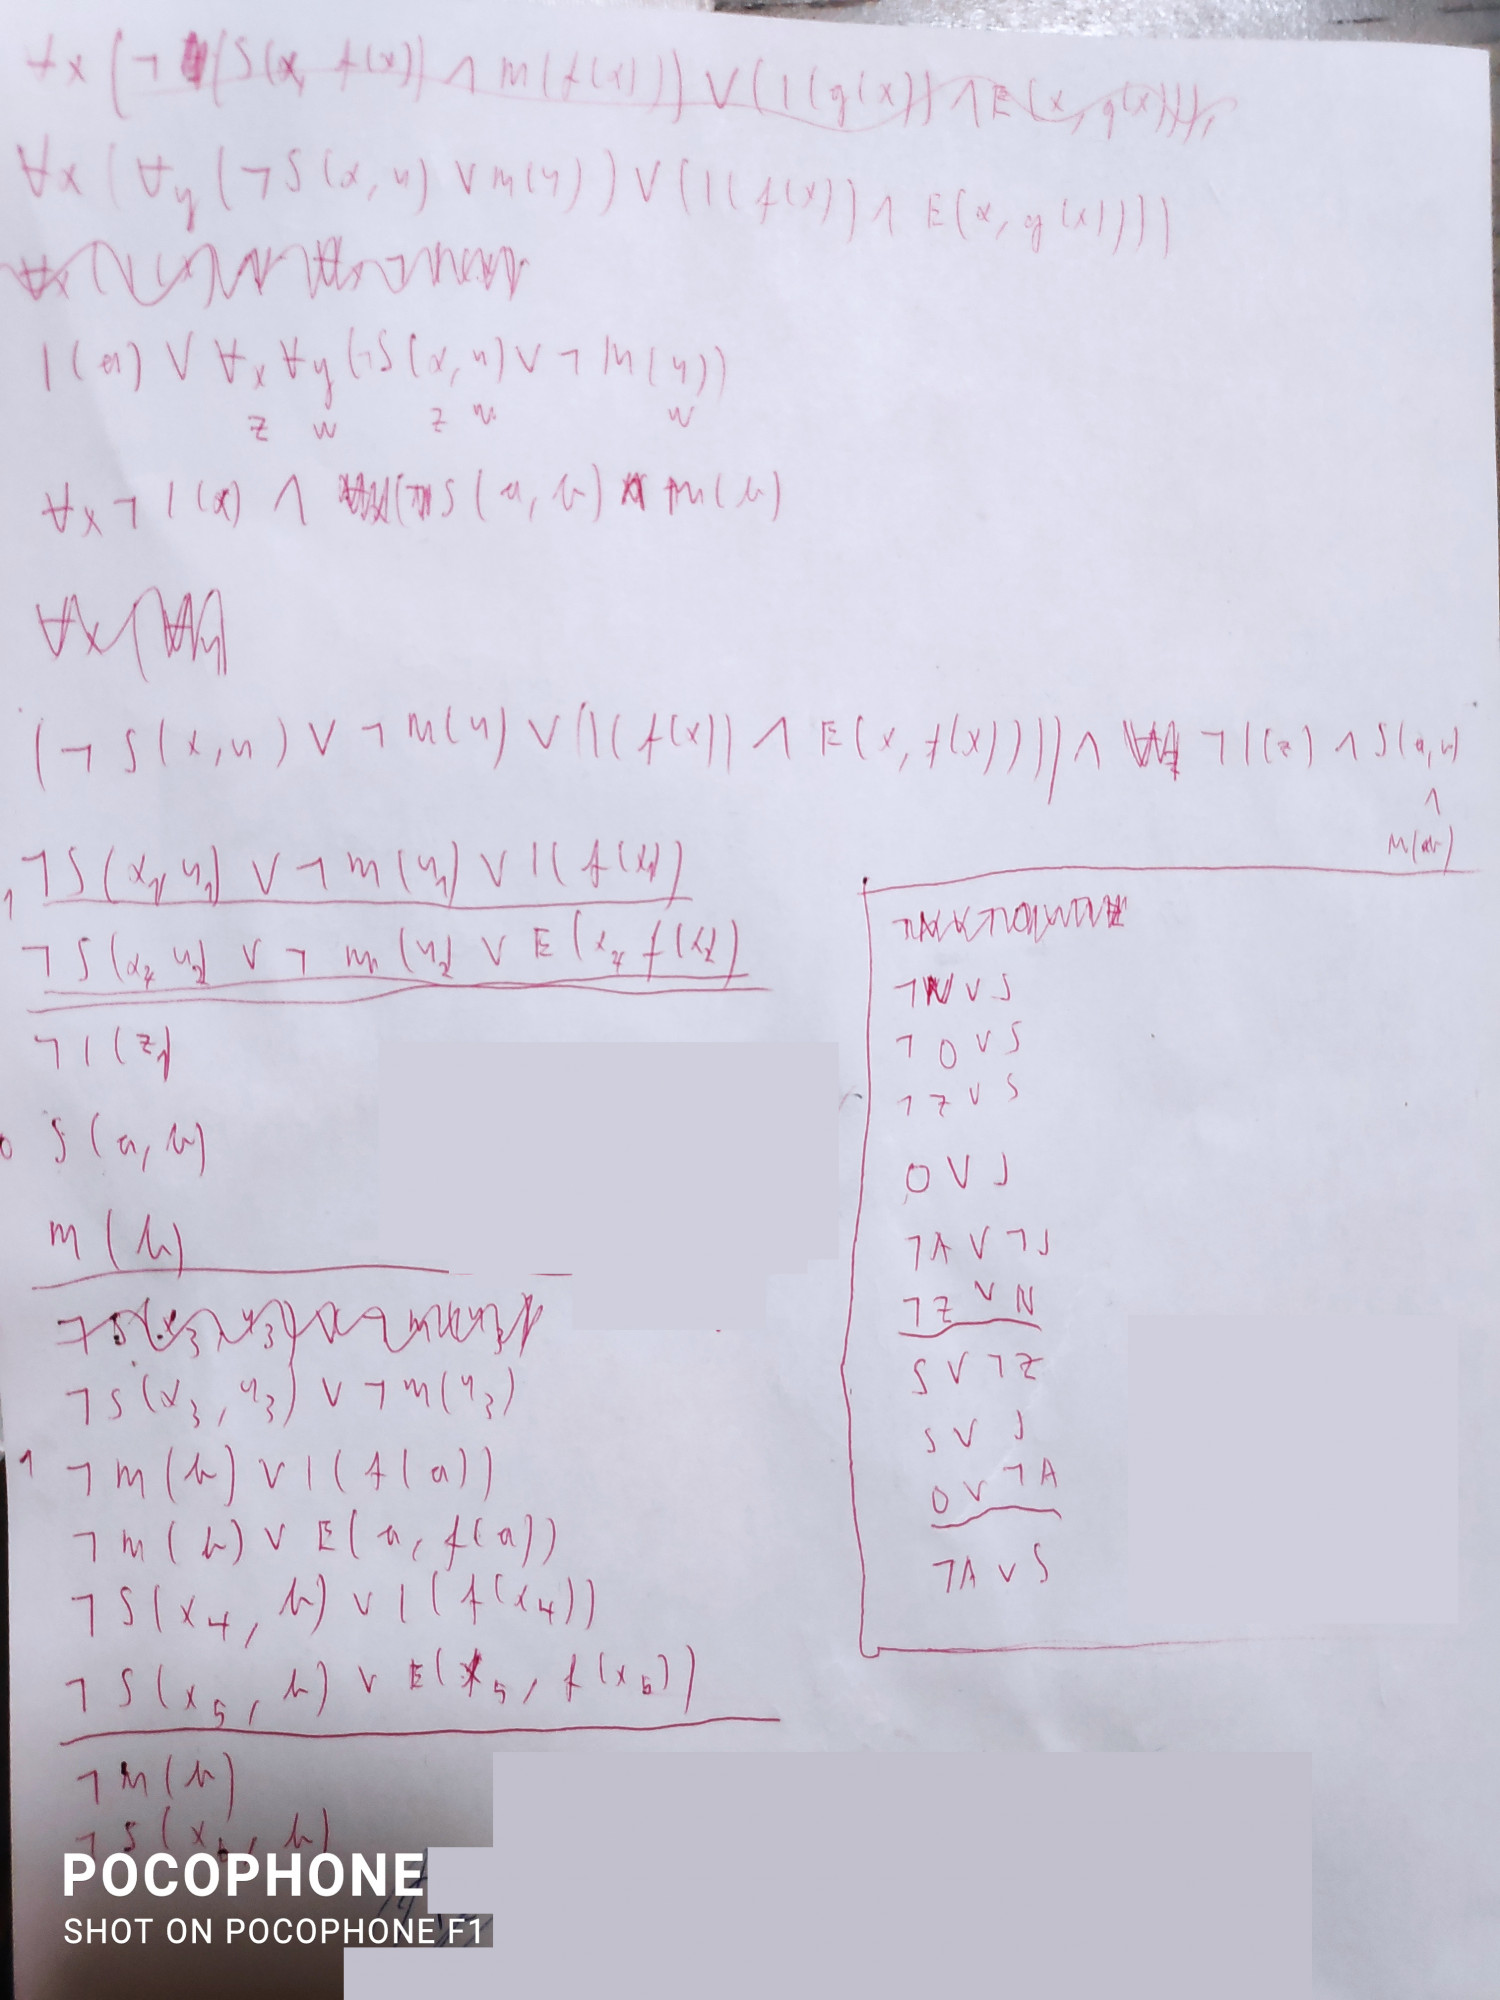 ∀x(¬(S(x, f(x)) ∧ m(f(x))) ∨ (I(g(x)) ∧ E(x, g(x))))
∀x(∀y(¬S(x,y) ∨ m(y)) ∨ (I(f(x)) ∧ E(x, g(x))))
I(a) ∨ ∀x ∀y(¬S(x,y) ∨ ¬m(y))
z w z w w
∀x ¬I(x) ∧ S(a, b) m(b)
(¬S(x,y) ∨ ¬m(y) ∨ (I(f(x)) ∧ E(x, f(x)))) ∧ ¬I(z) ∧ S(a,b)
∧
1 ¬S(x₁, y₁) ∨ ¬m(y₁) ∨ I(f(x₁))
¬S(x₂, y₂) ∨ ¬m(y₂) ∨ E(x₂, f(x₂))
¬I(z₁)
S(a, b)
m(b)
¬S(x₃, y₃) ∨ ¬m(y₃)
1 ¬m(b) ∨ I(f(a))
¬m(b) ∨ E(a, f(a))
¬S(x₄, b) ∨ I(f(x₄))
¬S(x₅, b) ∨ E(x₅, f(x₅))
¬m(b)
¬S(x₆, b)
¬N ∨ J
¬O ∨ S
¬Z ∨ S
O ∨ J
¬A ∨ ¬J
¬Z ∨ N
S ∨ ¬Z
S ∨ J
O ∨ ¬A
¬A ∨ S
POCOPHONE
SHOT ON POCOPHONE F1